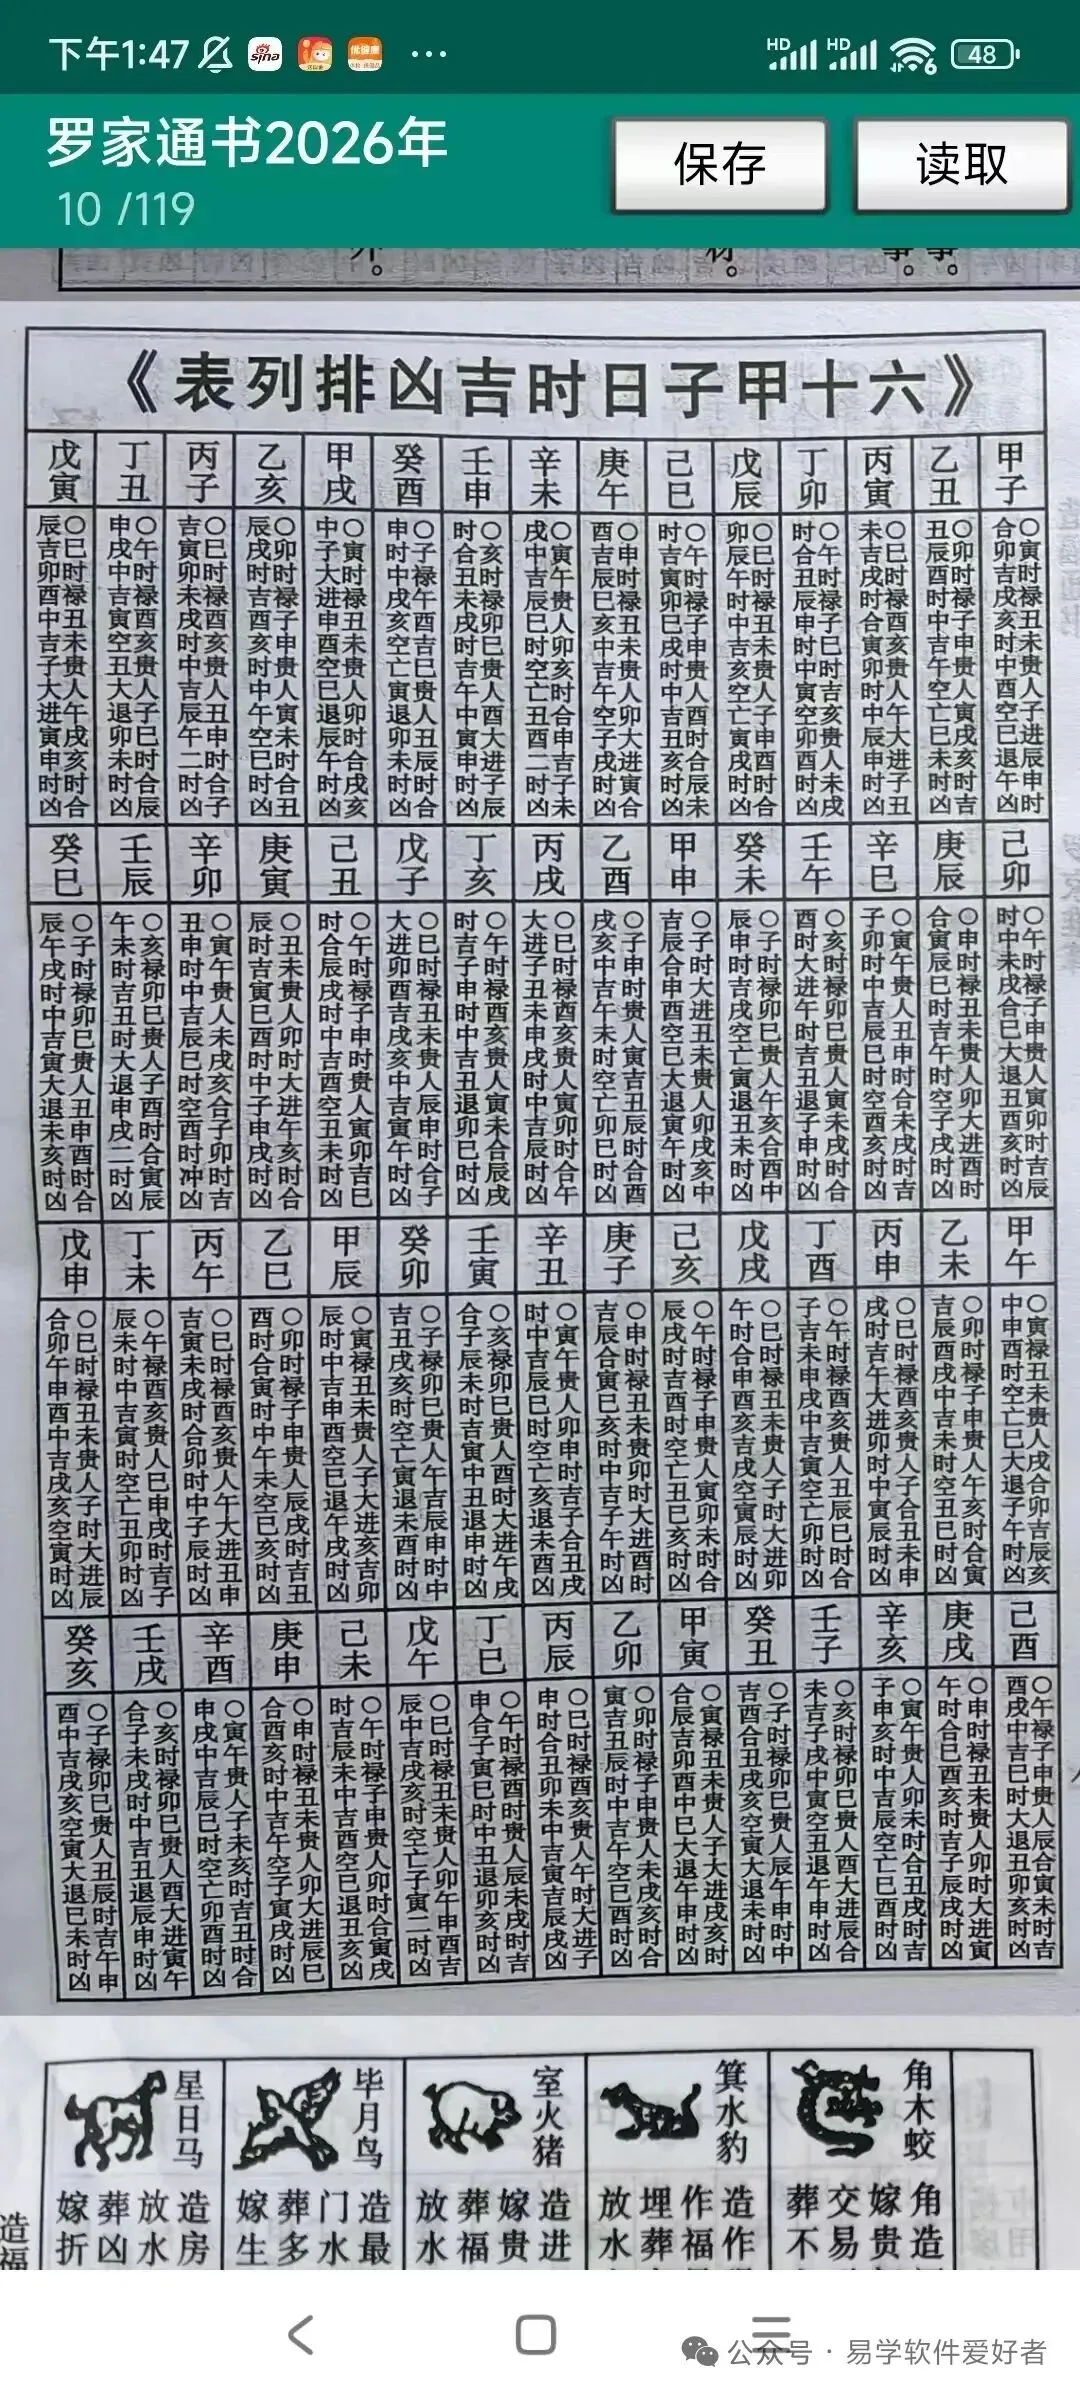 下午1:47 sina 优健康 ··· HD HD 6 48
罗家通书2026年
保存
读取
10 /119
《六十甲子日时吉凶排列表》
甲子
〇寅时禄丑未贵人子进辰申时
合卯吉戌亥时中酉空巳退午凶
乙丑
〇卯时禄子申贵人寅戌亥时吉
丑辰酉时中吉午空亡巳未时凶
丙寅
〇巳时禄酉亥贵人午大进子丑
未吉戌时合寅卯时中辰申时凶
丁卯
〇午时禄子巳时吉亥贵人未戌
时合丑辰申时中寅空卯酉时凶
戊辰
〇巳时禄丑未贵人子申酉时合
卯辰午时中吉亥空亡寅戌时凶
己巳
〇午时禄子申贵人酉时合辰未
时吉寅卯巳戌时中吉丑亥时凶
庚午
〇申时禄丑未贵人卯大进寅合
酉吉辰巳亥中吉午空子戌时凶
辛未
〇寅午贵人卯亥时合申吉子未
戌中吉辰巳时空亡丑酉二时凶
壬申
〇亥时禄卯巳贵人酉大进子辰
时合丑未戌时吉午中寅申时凶
癸酉
〇子禄午酉吉巳贵人丑辰时合
申时中戌亥空亡寅退卯未时凶
甲戌
〇寅时禄丑未贵人卯时合戌亥
中子大进申酉空巳退辰午时凶
乙亥
〇卯时禄子申贵人寅未时合丑
辰戌时吉酉亥时中午空巳时凶
丙子
〇巳时禄酉亥贵人丑申时合子
吉寅卯未戌时中吉辰午二时凶
丁丑
〇午时禄酉亥贵人子巳时合辰
申戌中吉寅空丑大退卯未时凶
戊寅
〇巳时禄丑未贵人午戌亥时合
辰吉卯酉中吉子大进寅申时凶
己卯
〇午时禄子申贵人寅卯时吉辰
时中未戌合巳大退丑酉亥时凶
庚辰
〇申时禄丑未贵人卯大进酉时
合寅辰巳时吉午时空子戌时凶
辛巳
〇寅午贵人丑申时合未戌时吉
子卯时中吉辰巳时空酉亥时凶
壬午
〇亥时禄卯巳贵人寅未戌时合
酉时大进午时吉丑退子申时凶
癸未
〇子时禄卯巳贵人午亥合酉中
辰申时吉戌空亡寅退丑未时凶
甲申
〇子时大进丑未贵人卯戌亥中
吉辰合申酉空巳大退寅午时凶
乙酉
〇子申时贵人寅吉丑辰时合酉
戌亥中吉午未时空亡卯巳时凶
丙戌
〇巳时禄酉亥贵人寅卯时合午
大进子丑未申戌时中吉辰时凶
丁亥
〇午时禄酉亥贵人寅未合辰戌
时吉子申时中吉丑退卯巳时凶
戊子
〇巳时禄丑未贵人辰申时合子
大进卯酉吉戌亥中吉寅午时凶
己丑
〇午时禄子申时贵人寅卯吉巳
时合辰戌时中吉酉空丑未时凶
庚寅
〇丑未贵人卯时大进午亥时合
辰时吉寅巳酉时中子申戌时凶
辛卯
〇寅午贵人未戌亥合子卯时吉
丑申时中吉辰巳时空酉时冲凶
壬辰
〇亥禄卯巳贵人子酉时合寅辰
午未时吉丑时大退申戌二时凶
癸巳
〇子时禄卯巳贵人丑申酉时合
辰午戌时中吉寅大退未亥时凶
甲午
〇寅禄丑未贵人戌合卯吉辰亥
中申酉时空亡巳大退子午时凶
乙未
〇卯时禄子申贵人午亥时合寅
吉辰酉戌中吉未时空丑巳时凶
丙申
〇巳时禄酉亥贵人子合丑未申
戌时吉午大进卯时中寅辰时凶
丁酉
〇午时禄酉亥贵人丑辰巳时合
子吉未申戌中吉寅空亡卯时凶
戊戌
〇巳时禄丑未贵人子时大进卯
午时合申酉亥吉戌空寅辰时凶
己亥
〇午时禄子申贵人寅卯未时合
辰戌时吉酉时空亡丑巳亥时凶
庚子
〇申时禄丑未贵卯时大进酉时
吉辰合寅巳亥时中吉子午时凶
辛丑
〇寅午贵人卯申时吉子合丑戌
时中吉辰巳时空亡亥退未酉凶
壬寅
〇亥禄卯巳贵人酉时大进午戌
合子辰未时吉寅中丑退申时凶
癸卯
〇子禄卯巳贵人午吉辰申时中
吉丑戌亥时空亡寅退未酉时凶
甲辰
〇寅禄丑未贵人子大进亥吉卯
辰时中吉申酉空巳退午戌时凶
乙巳
〇卯时禄子申贵人辰戌时吉丑
酉时合寅时中午未空巳亥时凶
丙午
〇巳时禄酉亥贵人午大进丑申
吉寅未戌时合卯时中子辰时凶
丁未
〇午禄酉亥贵人巳申戌时吉子
辰未时中吉寅时空亡丑卯时凶
戊申
〇巳时禄丑未贵人子时大进辰
合卯午申酉中吉戌亥空寅时凶
己酉
〇午禄子申贵人辰合寅未时吉
酉戌中吉巳时大退丑卯亥时凶
庚戌
〇申时禄丑未贵人卯时大进寅
午时合巳酉亥时吉子辰戌时凶
辛亥
〇寅午贵人卯未时合丑戌时吉
子申亥时中吉辰空亡巳酉时凶
壬子
〇亥时禄卯巳贵人酉大进辰合
未吉子戌中寅空丑退午申时凶
癸丑
〇子时禄卯巳贵人辰午申时中
吉酉合丑戌亥空寅大退未时凶
甲寅
〇寅禄丑未贵人子大进戌亥时
合辰吉卯酉中巳大退午申时凶
乙卯
〇卯时禄子申贵人未戌亥时合
寅吉丑辰时中吉午空巳酉时凶
丙辰
〇巳时禄酉亥贵人午时大进子
申时合丑卯未中吉寅吉辰戌凶
丁巳
〇午时禄酉时贵人辰未戌时吉
申合子寅巳时中丑退卯亥时凶
戊午
〇巳时禄丑未贵人卯午申酉吉
辰中吉戌亥时空亡子寅二时凶
己未
〇午时禄子申贵人卯时合寅戌
时吉辰未中吉酉空巳退丑亥凶
庚申
〇申时禄丑未贵人卯大进辰巳
合酉亥时中吉午空子寅戌时凶
辛酉
〇寅午贵人子未亥时吉丑时合
申戌中吉辰巳时空亡卯酉时凶
壬戌
〇亥时禄卯巳贵人酉大进寅午
合子未戌时中吉丑退辰申时凶
癸亥
〇子禄卯巳贵人丑辰时吉午申
酉中吉戌亥空寅大退巳未时凶
角木蛟
箕水豹
室火猪
毕月鸟
星日马
角造
嫁贵
交易
葬不
造作
作福
埋葬
放水
造进
嫁贵
葬福
放水
造最
门水
葬多
嫁生
造房
放水
葬凶
嫁折
造福
公众号 · 易学软件爱好者